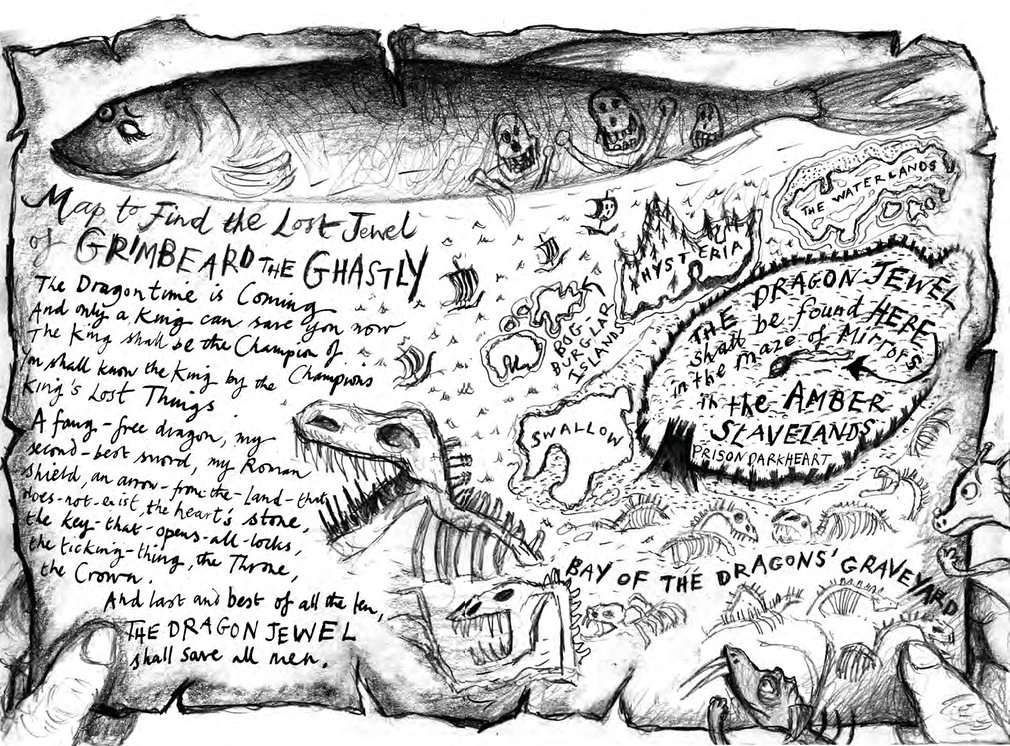 Map to Find the Lost Jewel
of GRIMBEARD THE GHASTLY
The Dragontime is Coming
And only a King can save you now
The King shall be the Champion of
You shall know the King by the Champions
King's Lost Things
A fang-free dragon, my
second-best sword, my Roman
shield, an arrow-from-the-land-that
does-not-exist, the heart's stone,
the key-that-opens-all-locks,
the ticking-thing, the Throne,
the Crown.
And last and best of all the ten,
THE DRAGON JEWEL
shall save all men.
THE WATERLANDS
HYSTERIA
BOG
BURGLAR
ISLANDS
SWALLOW
THE DRAGON JEWEL
shall be found HERE
in the maze of Mirrors
in the AMBER
SLAVELANDS
PRISON DARKHEART
BAY OF THE DRAGONS' GRAVEYARD